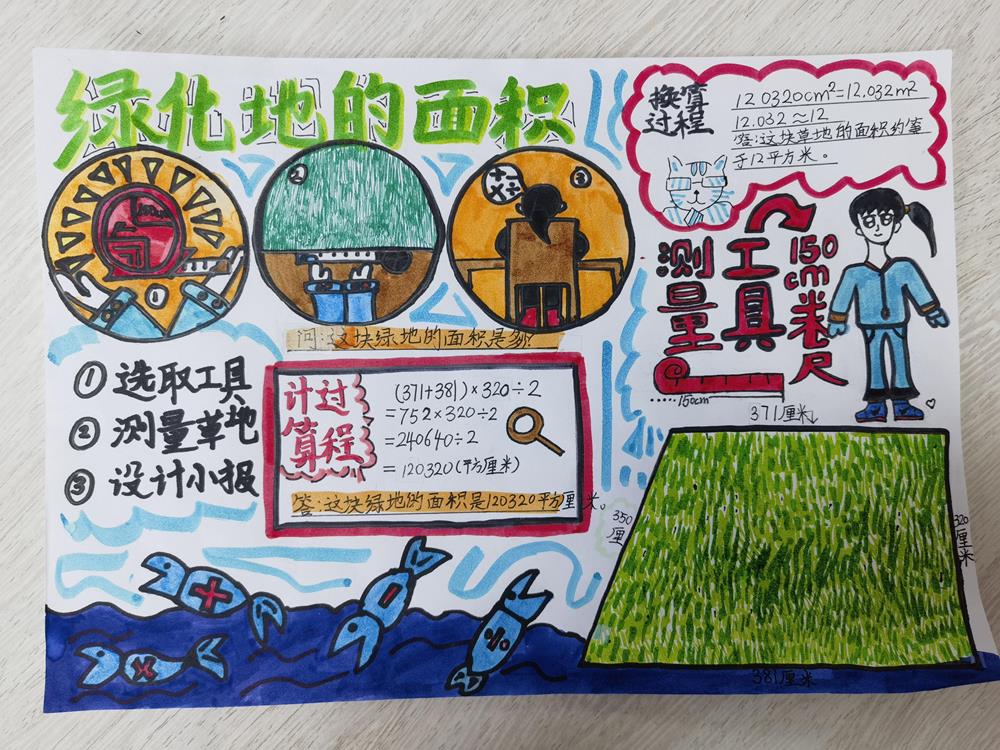 绿化地的面积
①
②
③
+ -
× ÷
问:这块绿地的面积是多少?
① 选取工具
② 测量草地
③ 设计小报
计算过程
(371+381)×320÷2
=752×320÷2
=240640÷2
=120320(平方厘米)
答:这块绿地的面积是120320平方厘米。
换算过程
120320cm²=12.032m²
12.032≈12
答:这块草地的面积约等
于12平方米。
测量工具
150cm米卷尺
150cm
371厘米
350厘
320厘米
381厘米